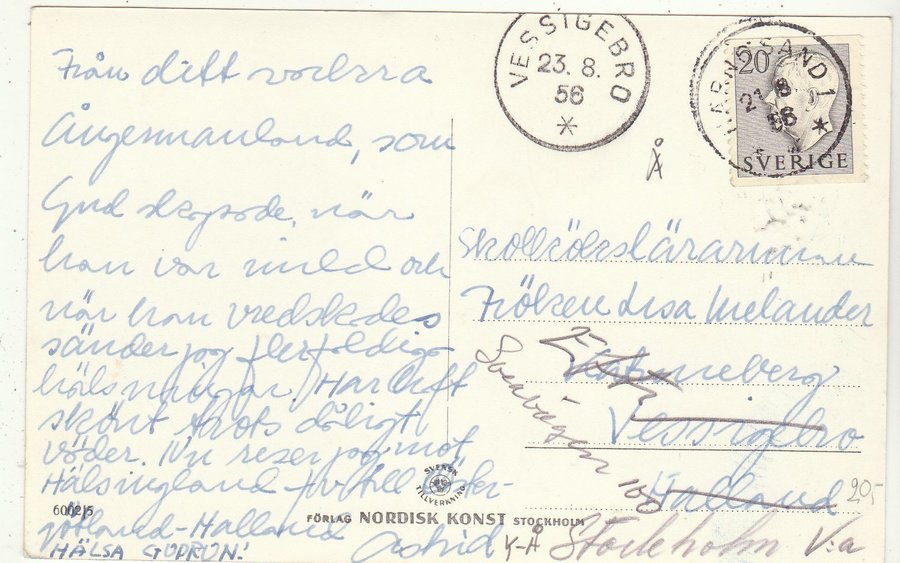 Från ditt vackra
Ångermanland, som
Gud skapade, när
han var mild och
när han vredgades
sänder jag flerfaldiga
hälsningar. Har haft
skönt trots dåligt
väder. Nu reser jag mot
Hälsingland
götland-Halland
Astrid
HÄLSA GUDRUN!
VESSIGEBRO
23. 8.
56
HÄRNÖSAND 1
21 8
56
20
SVERIGE
Å
Skolkökslärarinnan
Fröken Lisa Melander
Vessigebro
Halland
Sveavägen 100
Stockholm Va
Y-Å
20,-
SVENSK
TILLVERKNING
600215
FÖRLAG NORDISK KONST STOCKHOLM